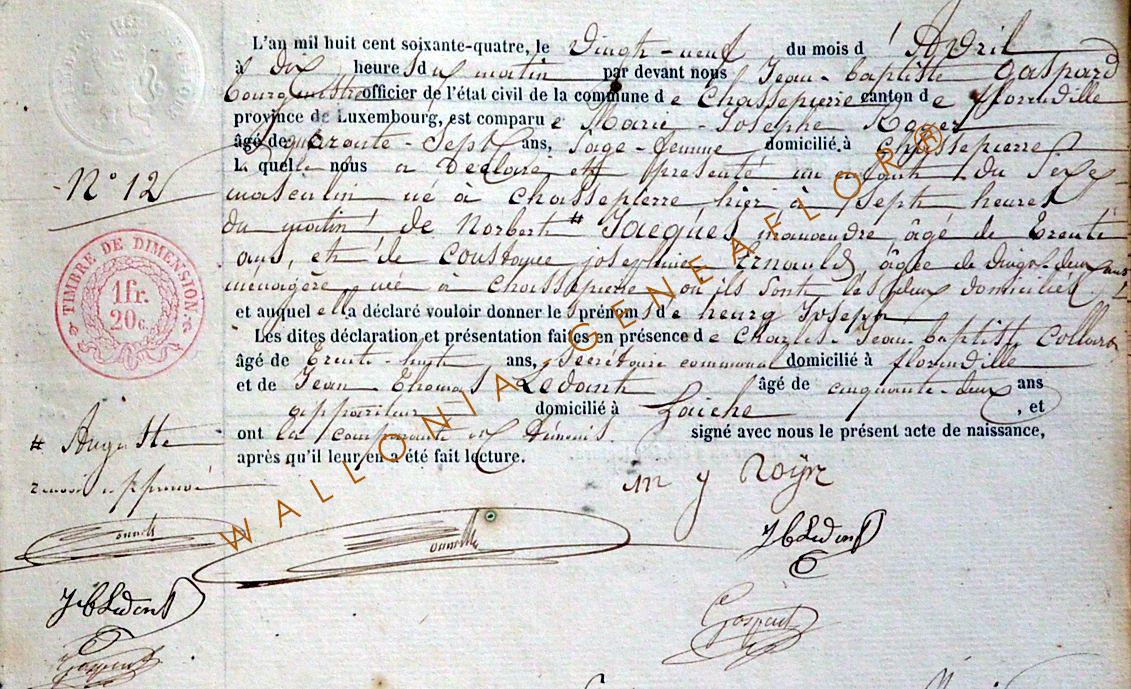 L'an mil huit cent soixante-quatre, le Vingt-neuf du mois d'Avril
à Dix heures du matin par devant nous Jean-baptiste gaspard
bourgmestre officier de l'état civil de la commune de Chassepierre canton de florenville
province de Luxembourg, est comparue Marie-Josephe
âgé de quarante-Sept ans, Sage-femme domicilié à Chassepierre
Laquelle nous a Déclaré et présenté un enfant du Sexe
N° 12
masculin né à Chassepierre hier à Sept heures
du matin de Norbert # Jacques âgé de trente
ans, et de josephine Arnould, âgée de Vingt-deux ans
ménagère née à Chassepierre où ils sont les deux domiciliés
et auquel elle a déclaré vouloir donner le prénoms de henry Joseph
Les dites déclaration et présentation faites en présence de Charles-Jean-baptiste
âgé de trente-huit ans, Secrétaire communal domicilié à florenville
et de Jean Thomas Ledent âgé de cinquante-deux ans
appariteur domicilié à Laiche , et
ont la comparante et témoins signé avec nous le présent acte de naissance,
après qu'il leur en a été fait lecture.
TIMBRE DE DIMENSION
1 fr.
20 c.
# Auguste
renvoi approuvé
m j
Gaspard
WALLONIA GENEAFLOR®